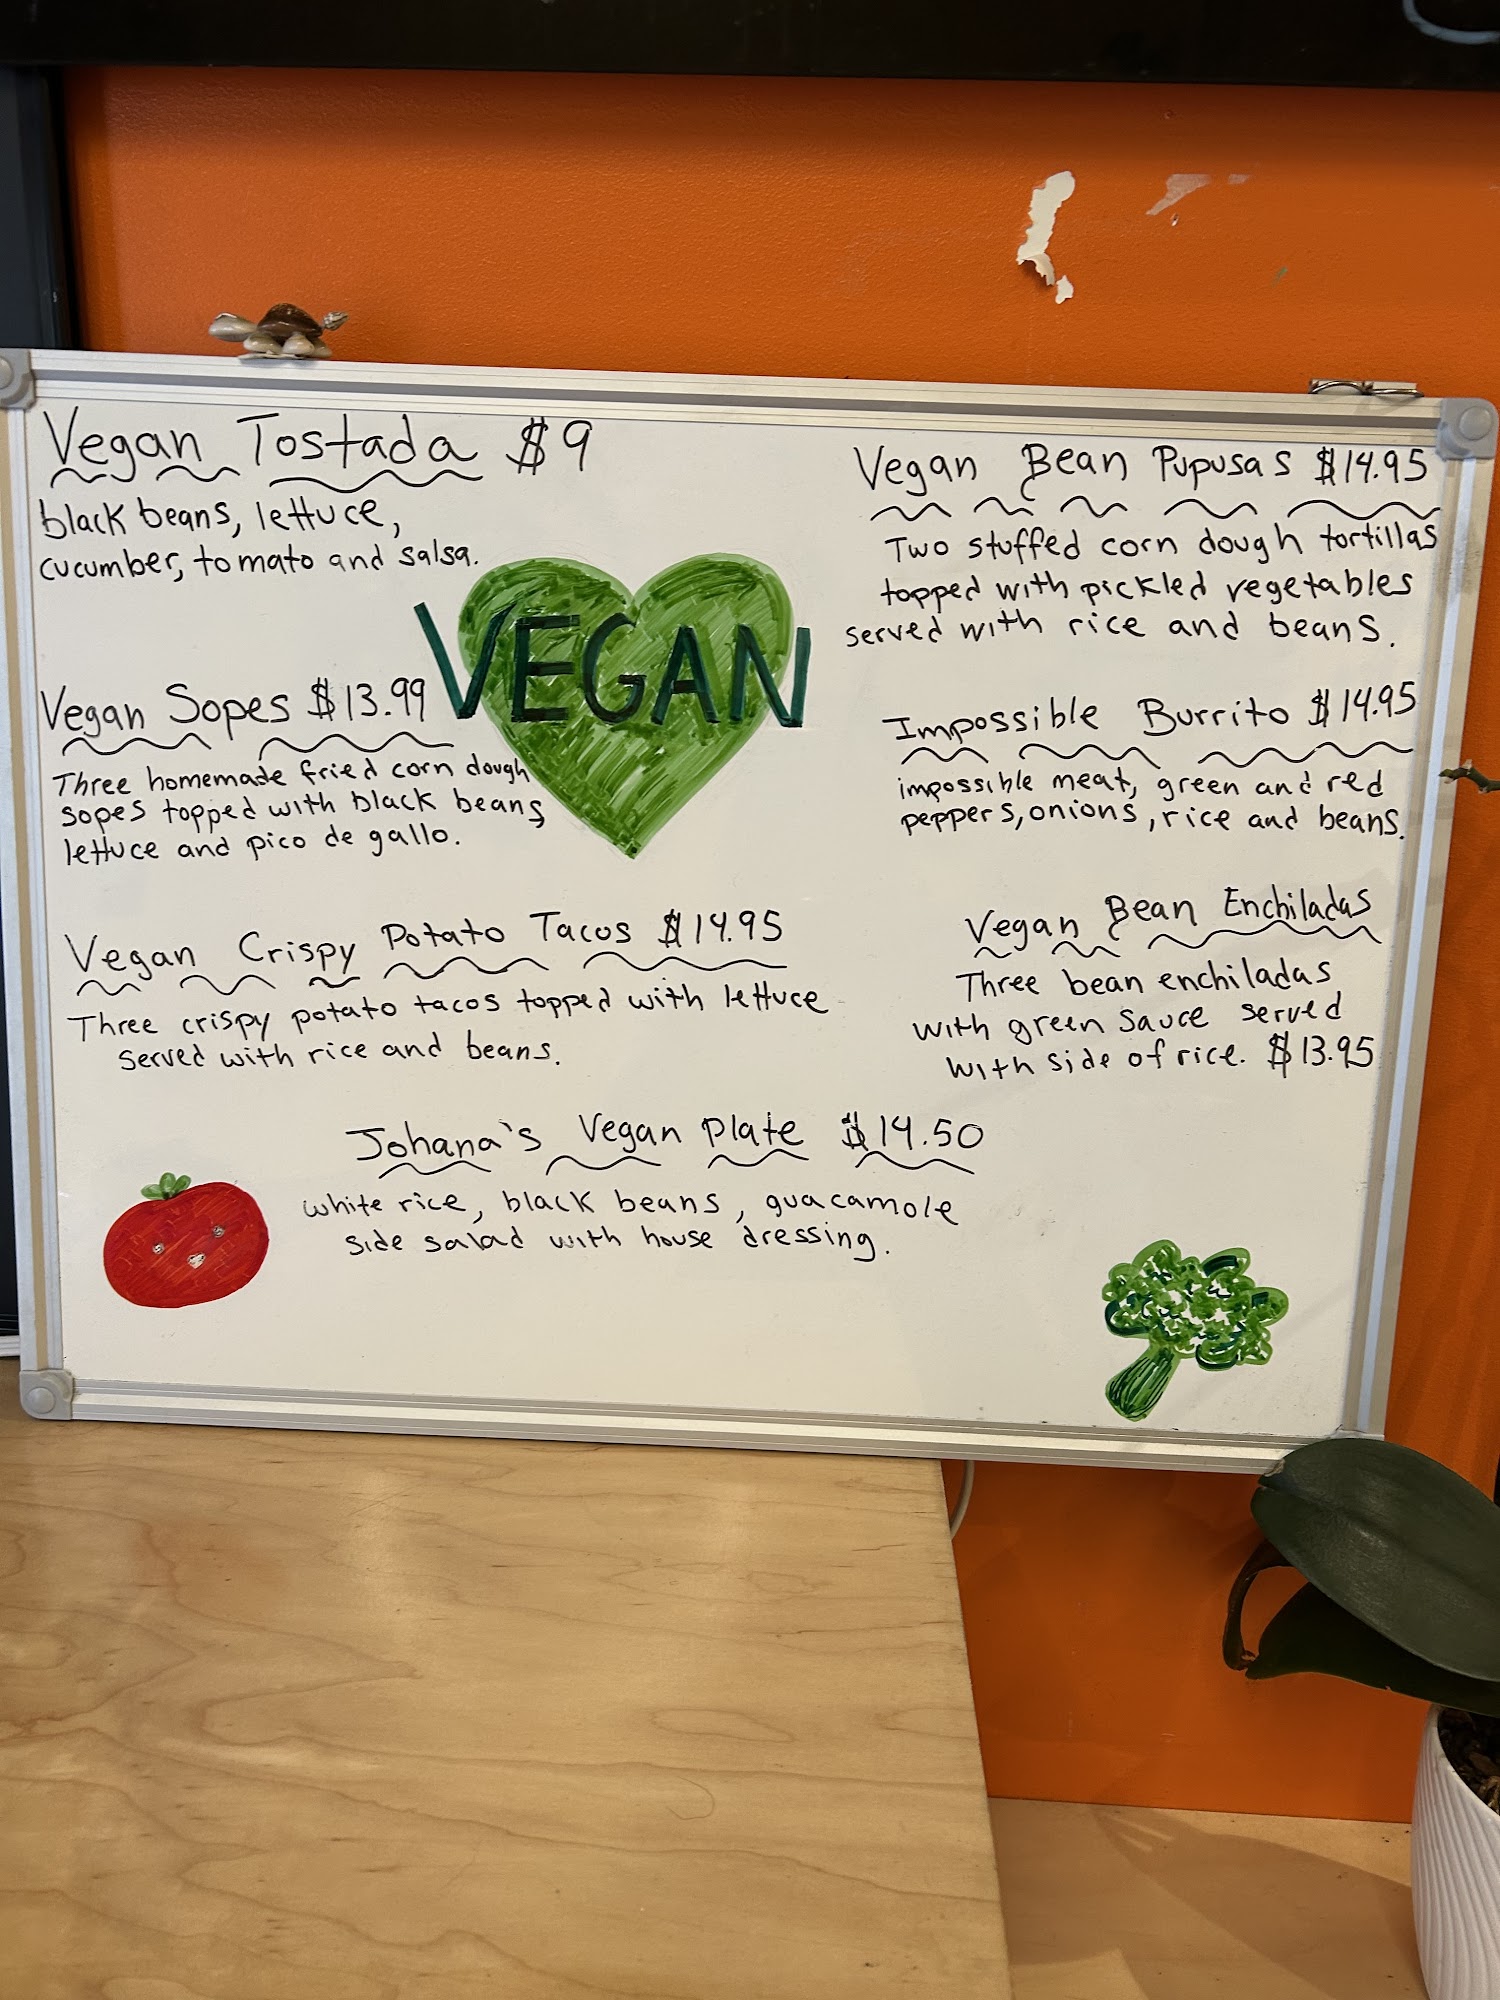 Vegan Tostada $9
black beans, lettuce,
cucumber, tomato and salsa.
VEGAN
Vegan Sopes $13.99
Three homemade fried corn dough
sopes topped with black beans,
lettuce and pico de gallo.
Vegan Crispy Potato Tacos $14.95
Three crispy potato tacos topped with lettuce
served with rice and beans.
Vegan Bean Pupusas $14.95
Two stuffed corn dough tortillas
topped with pickled vegetables
served with rice and beans.
Impossible Burrito $14.95
impossible meat, green and red
peppers, onions, rice and beans.
Vegan Bean Enchiladas
Three bean enchiladas
with green sauce served
with side of rice. $13.95
Johana's Vegan Plate $14.50
white rice, black beans, guacamole
side salad with house dressing.